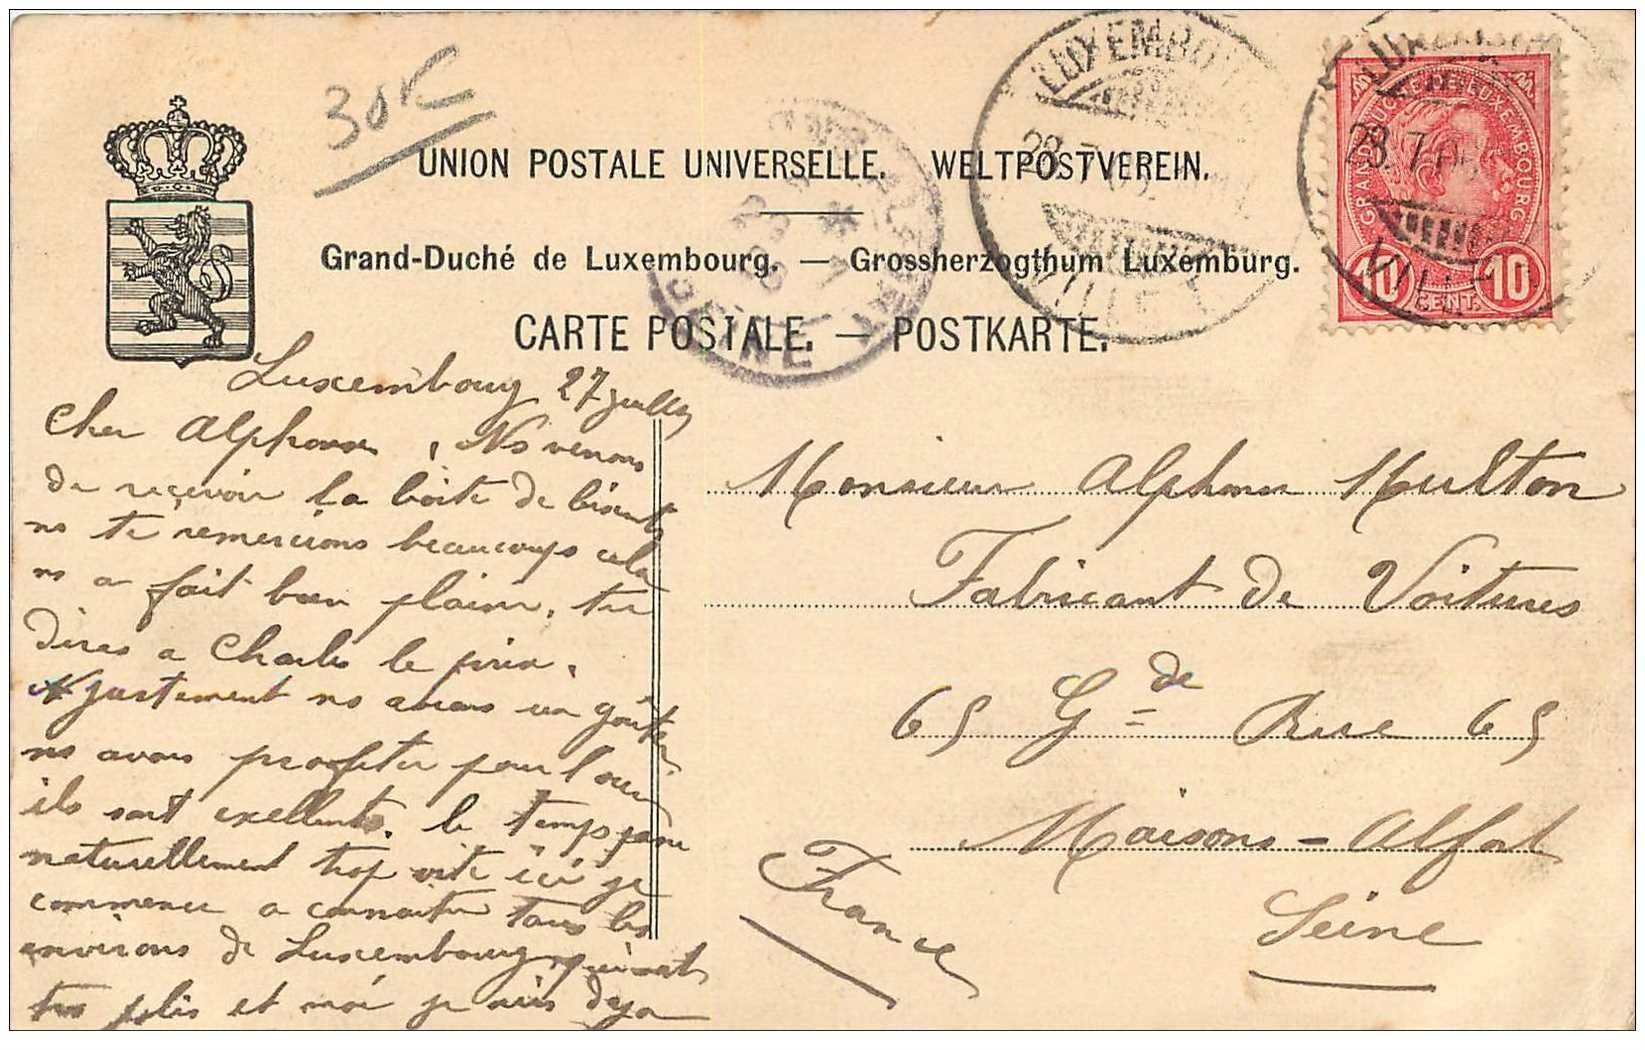 30K
UNION POSTALE UNIVERSELLE. WELTPOSTVEREIN.
Grand-Duché de Luxembourg. — Grossherzogthum Luxemburg.
CARTE POSTALE. — POSTKARTE.
LUXEMBOURG
28.7.05
VILLE
LUXEMBOURG
28.7.05
VILLE
GRAND DUCHÉ DE LUXEMBOURG
10 CENT. 10
SEINE
Luxembourg 27 juillet
Cher Alphonse, Ns venons
de reçevoir la boite de biscuits
ns te remercions beaucoups cela
ns a fait bien plaisir, tu
diras a Charles le prix.
Justement ns avons un goûter
ns avons profiter pour l'ouvrir
ils sont exellents. le temps passe
naturellement trop vite içi je
commence a connaitre tous les
environs de Luxembourg qui sont
tres jolis et moi je suis deja
Monsieur Alphonse Multon
Fabricant de Voitures
65 Gde Rue 65
Maisons-Alfort
Seine
France